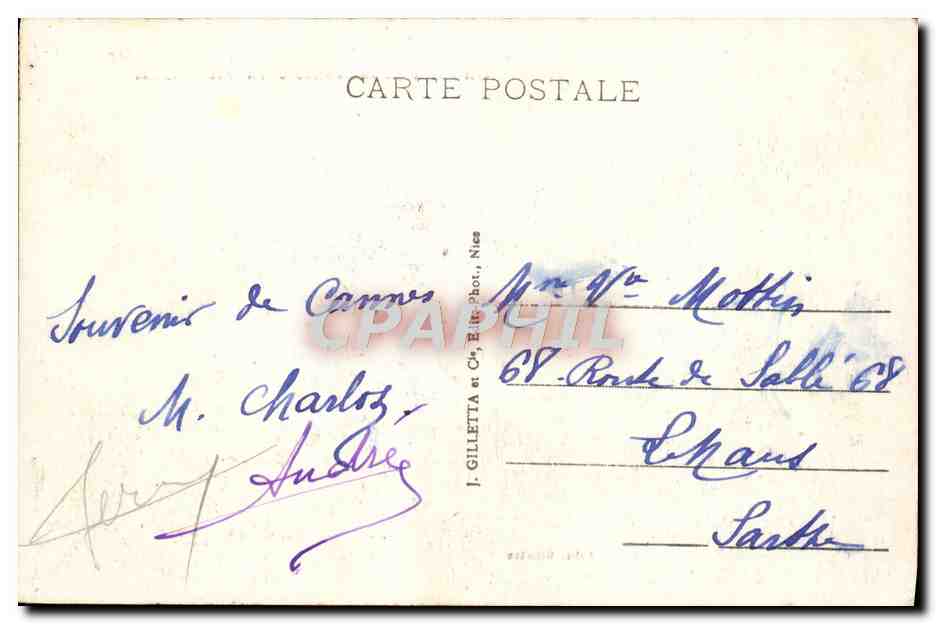 CARTE POSTALE
Souvenir de Cannes
M. Charlot
André
J. GILLETTA et Cie, Edit. Phot., Nice
Mme Vve Mottin
68 Route de Sablé 68
Le Mans
Sarthe
CPAPHIL